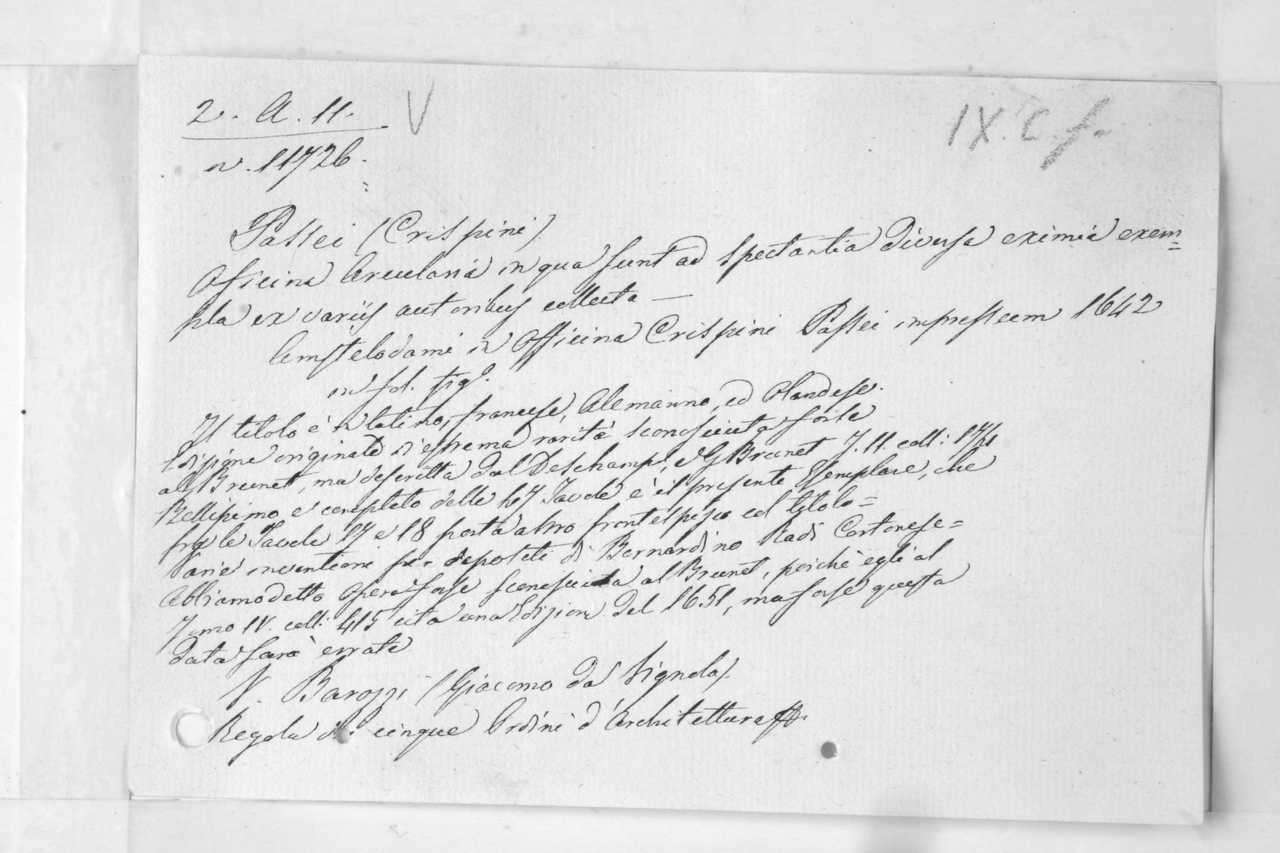 2. A. 11. V IX. C. f.
n. 11726.
Passei (Crispini)
Officina Arcularia in qua sunt ad spectantia diversa eximia exem=
pla ex variis autoribus collecta —
Amstelodami in Officina Crispini Passei impressum 1642
in fol. fig.
Il titolo è in latino, francese, Alemanno, ed Olandese.
Edizione originale d'estrema rarità sconosciuta forse
al Brunet, ma descritta dal Deschamps, e G Brunet T. II. coll: 176
Bellissimo e completo delle 67 Tavole è il presente Esemplare, che
fra le Tavole 17 e 18 porta altro frontespizio col titolo=
Varie inventioni per depositi di Bernardino Radi Cortonese=
Abbiamo detto Opera forse sconosciuta al Brunet, perchè egli al
Tomo IV. coll: 415 cita una Edizion del 1651, ma forse questa
data sarà errata
V. Barozzi (Giacomo da Vignola)
Regola di cinque Ordini d'Architettura